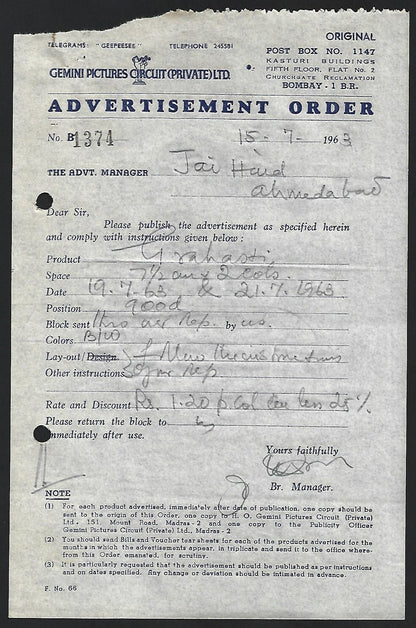 ORIGINAL
TELEGRAMS: "GEEPEESEE" TELEPHONE 245581
POST BOX NO. 1147
KASTURI BUILDINGS
FIFTH FLOOR, FLAT No. 2
CHURCHGATE RECLAMATION
BOMBAY - 1 B.R.
GEMINI PICTURES CIRCUIT (PRIVATE) LTD.
ADVERTISEMENT ORDER
No. B 1374 15 - 7 - 1963
THE ADVT. MANAGER Jai Hind
Ahmedabad
Dear Sir,
Please publish the advertisement as specified herein
and comply with instructions given below :
Product Grahasti
Space 7½ 2 Cols.
Date 19.7.63 & 21.7.1963
Position good
Block sent thro our Rep. by us.
Colors B/W
Lay-out/Design
Other instructions Rep
Rate and Discount Rs. 1.20 p. Col less 25 %
Please return the block to
immediately after use.
Yours faithfully
Br. Manager.
NOTE
(1) For each product advertised, immediately after date of publication, one copy should be
sent to the origin of this Order, one copy to H. O. Gemini Pictures Circuit (Private)
Ltd., 151, Mount Road, Madras - 2 and one copy to the Publicity Officer
Gemini Pictures Circuit (Private) Ltd., Madras - 2
(2) You should send Bills and Voucher tear sheets for each of the products advertised for the
months in which the advertisements appear, in triplicate and send it to the office where-
from this Order emanated, for scrutiny.
(3) It is particularly requested that the advertisement should be published as per instructions
and on dates specified. Any change or deviation should be intimated in advance.
F. No. 66